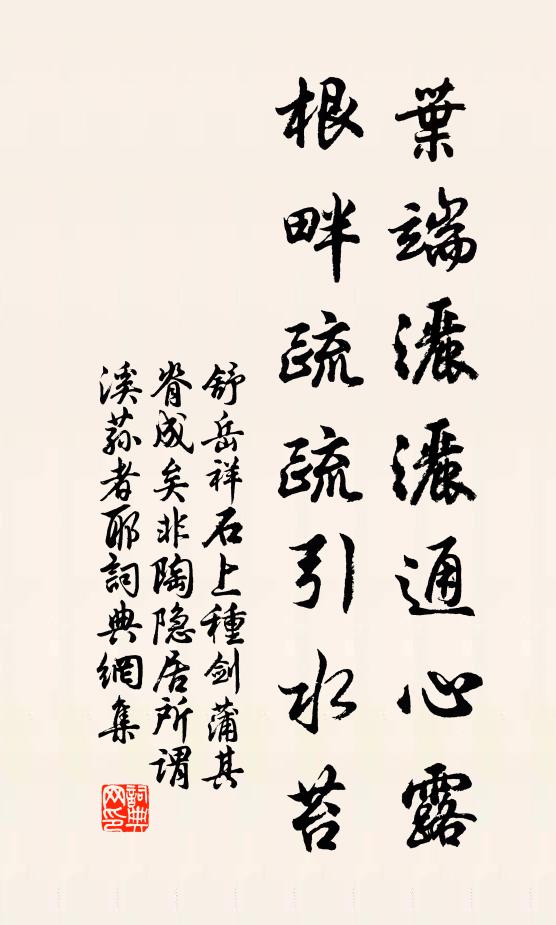 葉端灑灑通心露
根畔疏疏引水苔
舒岳祥石上種劍蒲其
脊成矣非陶隐居所謂
溪蓀者耶詞典網集
詞典網印